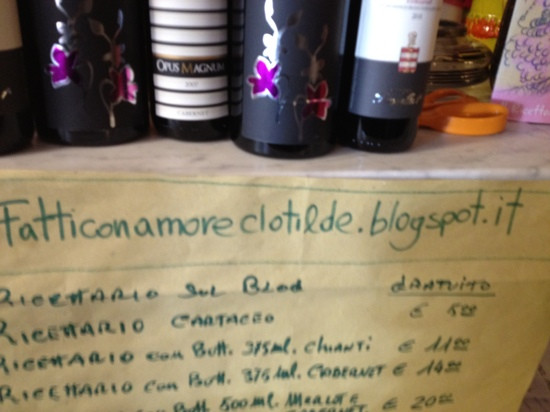 OPUS MAGNUM
CABERNET
Fatticonamoreclotilde.blogspot.it
RICETTARIO SUL BLOG GRATUITO
RICETTARIO CARTACEO € 5.00
RICETTARIO CON BOTT. 375ml. CHIANTI € 11.00
RICETTARIO CON BOTT. 375ml. CABERNET € 14.00
BOTT. 500ml. MERLOT E € 20.00